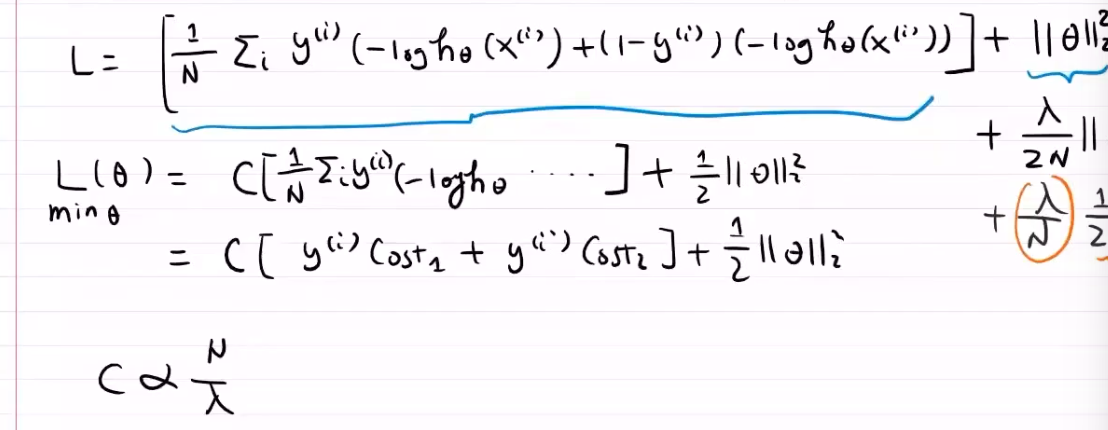 L = [ 1/N Σᵢ y⁽ⁱ⁾ (-log h_θ (x⁽ⁱ⁾) + (1-y⁽ⁱ⁾) (-log h_θ(x⁽ⁱ⁾)) ] + ||θ||₂²
+ λ/2N ||
L(θ) = C[ 1/N Σᵢ y⁽ⁱ⁾(-log h_θ ····· ] + 1/2 ||θ||₂²
min θ
+ λ/N 1/2
= C[ y⁽ⁱ⁾ Cost₁ + y⁽ⁱ⁾ Cost₂ ] + 1/2 ||θ||₂²
C ∝ N/λ